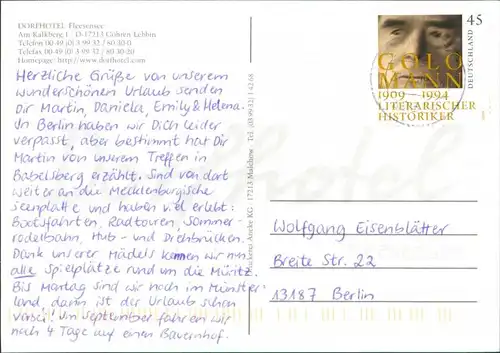 DORFHOTEL Fleesensee
Am Kalkberg 1 · D-17213 Göhren-Lebbin
Telefon 00 49 (0) 3 99 32 / 80 30 0
Telefax 00 49 (0) 3 99 32 / 80 30 20
Homepage: http//www.dorfhotel.com
Herzliche Grüße von unserem
wunderschönen Urlaub senden
Dir Martin, Daniela, Emily & Helena.
In Berlin haben wir Dich leider
verpasst, aber bestimmt hat Dir
Martin von unserem Treffen in
Babelsberg erzählt. Sind von dort
weiter an die Mecklenburgische
Seenplatte und haben viel erlebt:
Bootsfahrten, Radtouren, Sommer-
rodelbahn, Hub- und Drehbrücken.
Dank unserer Mädels kennen wir nun
alle Spielplätze rund um die Müritz.
Bis Montag sind wir noch im Münster-
land, dann ist der Urlaub schon
vorbei! Im September fahren wir
noch 4 Tage auf einen Bauernhof.
Druckerei Antke KG · 17213 Malchow · Tel. (03 99 32) 1 42 68
45
DEUTSCHLAND
GOLO
MANN
1909 – 1994
LITERARISCHER
HISTORIKER
dorfhotel
Wolfgang Eisenblätter
Breite Str. 22
13187 Berlin